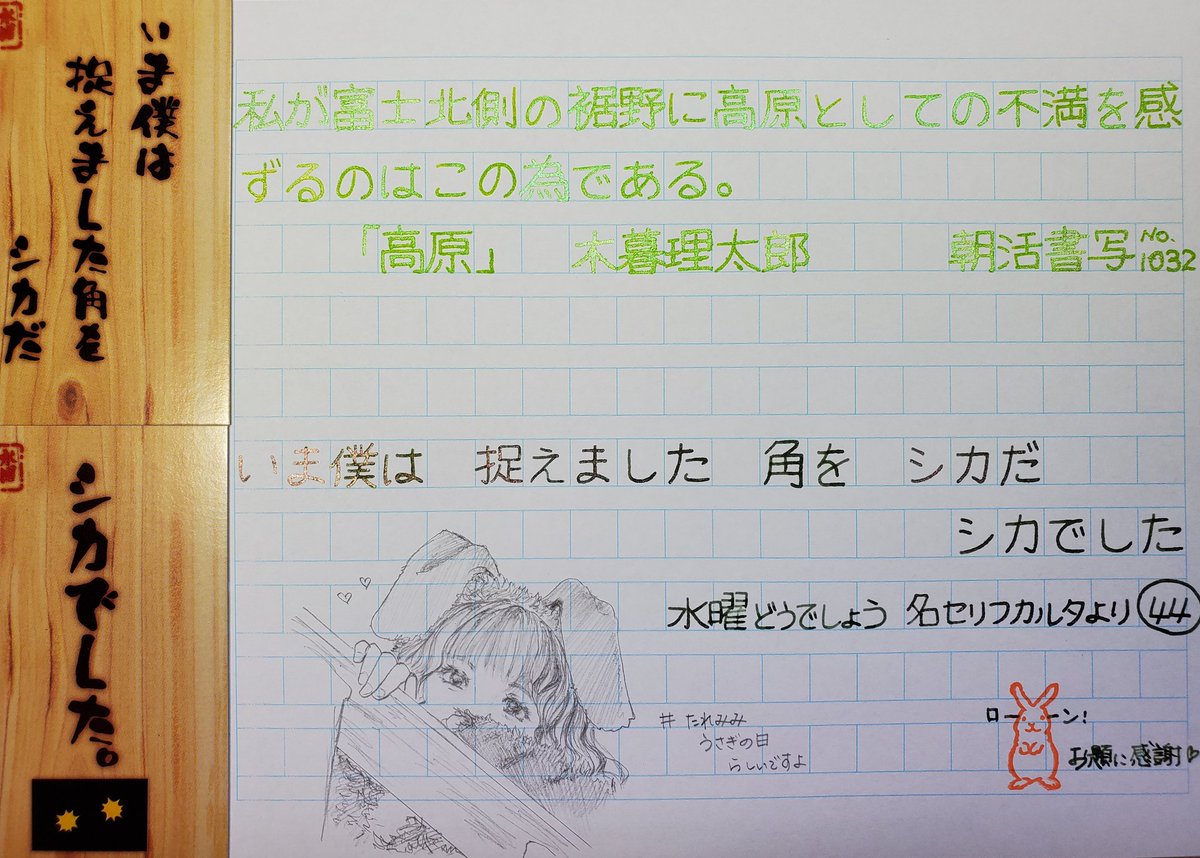 いま僕は
捉えました角を
シカだ
シカでした。
私が富士北側の裾野に高原としての不満を感
ずるのはこの為である。
「高原」 木暮理太郎 朝活書写 No.1032
いま僕は 捉えました 角を シカだ
シカでした
水曜どうでしょう 名セリフカルタより 44
# たれみみ
うさぎの日
らしいですよ
ローーン!
お題に感謝♡